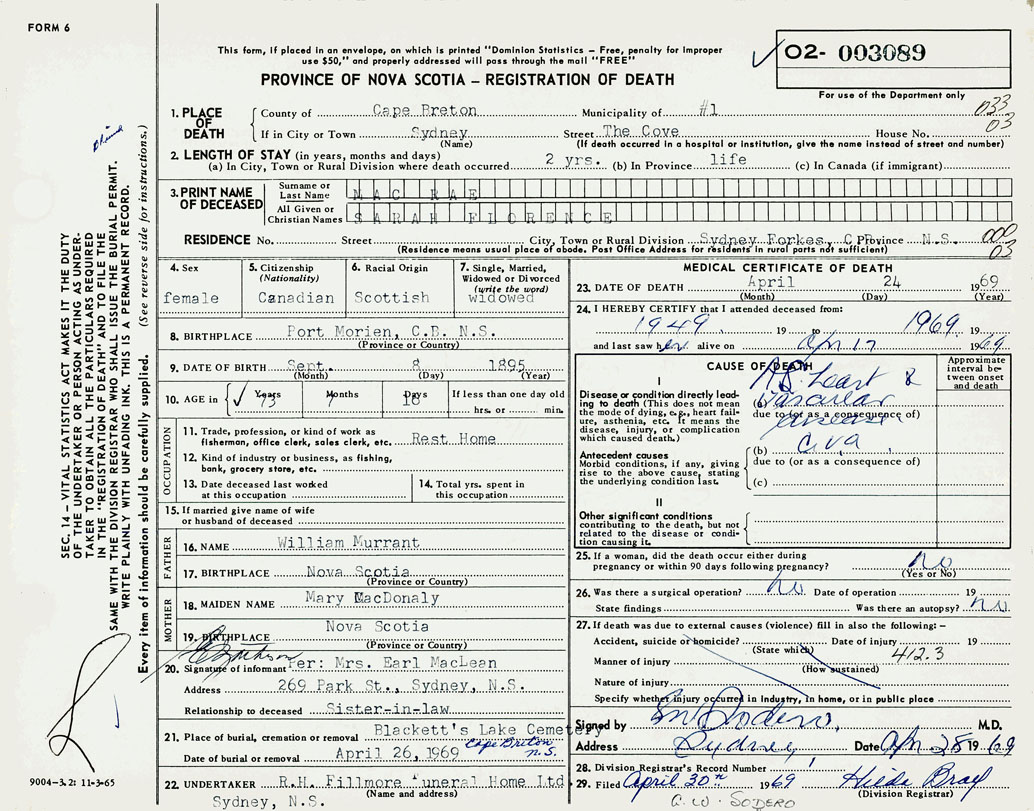 FORM 6
This form, if placed in an envelope, on which is printed "Dominion Statistics – Free, penalty for improper
use $50," and properly addressed will pass through the mail "FREE"
PROVINCE OF NOVA SCOTIA – REGISTRATION OF DEATH
O2- 003089
For use of the Department only
SEC. 14 – VITAL STATISTICS ACT MAKES IT THE DUTY
OF THE UNDERTAKER OR PERSON ACTING AS UNDER-
TAKER TO OBTAIN ALL THE PARTICULARS REQUIRED
IN THE "REGISTRATION OF DEATH" AND TO FILE THE
SAME WITH THE DIVISION REGISTRAR WHO SHALL ISSUE THE BURIAL PERMIT.
WRITE PLAINLY WITH UNFADING INK. THIS IS A PERMANENT RECORD.
Every item of information should be carefully supplied. (See reverse side for instructions.)
1. PLACE OF DEATH
County of Cape Breton Municipality of #1 033
If in City or Town Sydney Street The Cove House No. 03
(Name) (If death occurred in a hospital or institution, give the name instead of street and number)
2. LENGTH OF STAY (in years, months and days)
(a) In City, Town or Rural Division where death occurred 2 yrs. (b) In Province life (c) In Canada (if immigrant)
3. PRINT NAME OF DECEASED
Surname or Last Name MAC RAE
All Given or Christian Names SARAH FLORENCE
RESIDENCE No. Street City, Town or Rural Division Sydney Forkes, C B Province N.S. 000
(Residence means usual place of abode. Post Office Address for residents in rural parts not sufficient) 03
4. Sex
female
5. Citizenship
(Nationality)
Canadian
6. Racial Origin
Scottish
7. Single, Married,
Widowed or Divorced
(write the word)
widowed
8. BIRTHPLACE Port Morien, C.B. N.S.
(Province or Country)
9. DATE OF BIRTH Sept. 8 1895
(Month) (Day) (Year)
10. AGE in Years 73 Months 7 Days 16 If less than one day old
hrs. or min.
OCCUPATION
11. Trade, profession, or kind of work as
fisherman, office clerk, sales clerk, etc. Rest Home
12. Kind of industry or business, as fishing,
bank, grocery store, etc.
13. Date deceased last worked
at this occupation
14. Total yrs. spent in
this occupation
15. If married give name of wife
or husband of deceased
FATHER
16. NAME William Murrant
17. BIRTHPLACE Nova Scotia
(Province or Country)
MOTHER
18. MAIDEN NAME Mary MacDonaly
19. BIRTHPLACE Nova Scotia
(Province or Country)
20. Signature of informant Per: Mrs. Earl MacLean
Address 269 Park St., Sydney, N.S.
Relationship to deceased Sister-in-law
21. Place of burial, cremation or removal Blackett's Lake Cemetery
Cape Breton
N.S.
Date of burial or removal April 26, 1969
22. UNDERTAKER R.H. Fillmore Funeral Home Ltd
(Name and address)
Sydney, N.S.
9004-3.2: 11-3-65
MEDICAL CERTIFICATE OF DEATH
23. DATE OF DEATH April 24 1969
(Month) (Day) (Year)
24. I HEREBY CERTIFY that I attended deceased from:
1949 19 to 1969 19
and last saw her alive on Apr 17 1969
CAUSE OF DEATH
Approximate
interval be-
tween onset
and death
I
Disease or condition directly lead-
ing to death (This does not mean
the mode of dying, e.g., heart fail-
ure, asthenia, etc. It means the
disease, injury, or complication
which caused death.)
A.S. Heart &
(a) Vascular
due to (or as a consequence of)
disease
Antecedent causes
Morbid conditions, if any, giving
rise to the above cause, stating
the underlying condition last.
(b) C.V.A.
due to (or as a consequence of)
(c)
II
Other significant conditions
contributing to the death, but not
related to the disease or condi-
tion causing it.
25. If a woman, did the death occur either during
pregnancy or within 90 days following pregnancy? No
(Yes or No)
26. Was there a surgical operation? No Date of operation 19
State findings Was there an autopsy? No
27. If death was due to external causes (violence) fill in also the following:–
Accident, suicide or homicide? Date of injury 19
(State which) 412.3
Manner of injury
(How sustained)
Nature of injury
Specify whether injury occurred in Industry, in home, or in public place
Signed by M.D.
Address Sydney Date Apr 28 1969
28. Division Registrar's Record Number
29. Filed April 30th 1969 Hilda Bray
(Division Registrar)
C.W. SODERO